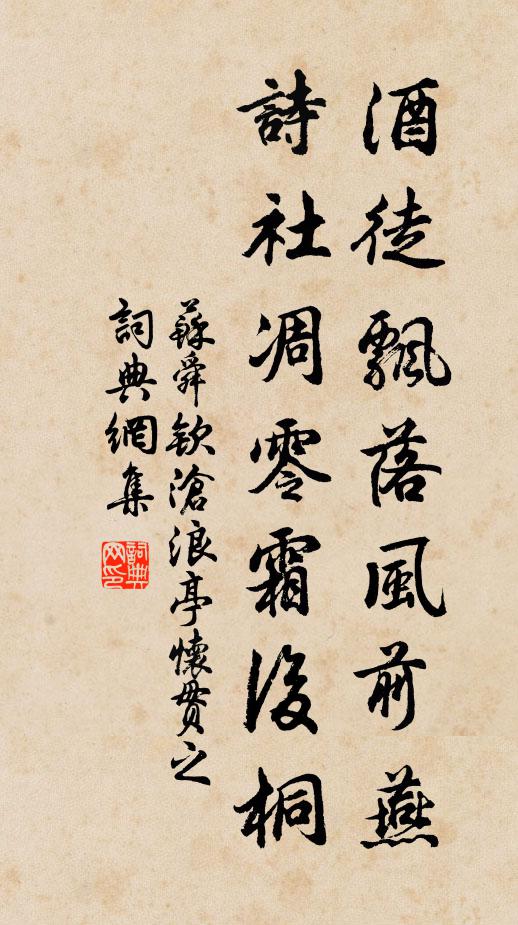 酒徒飄落風前燕
詩社凋零霜後桐
蘇舜欽滄浪亭懷貫之
詞典網集
詞典網印